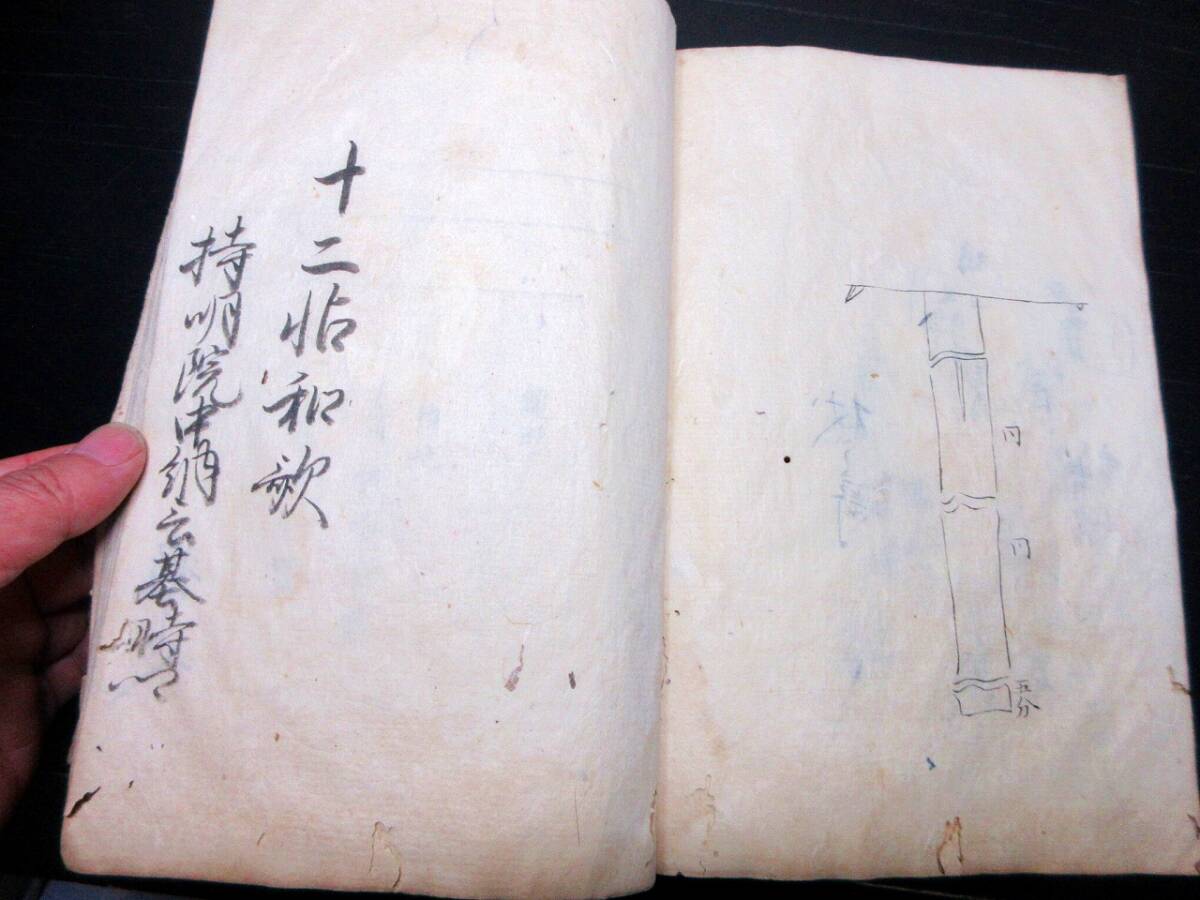 五分
十二帖和歌
持明院中納言基時